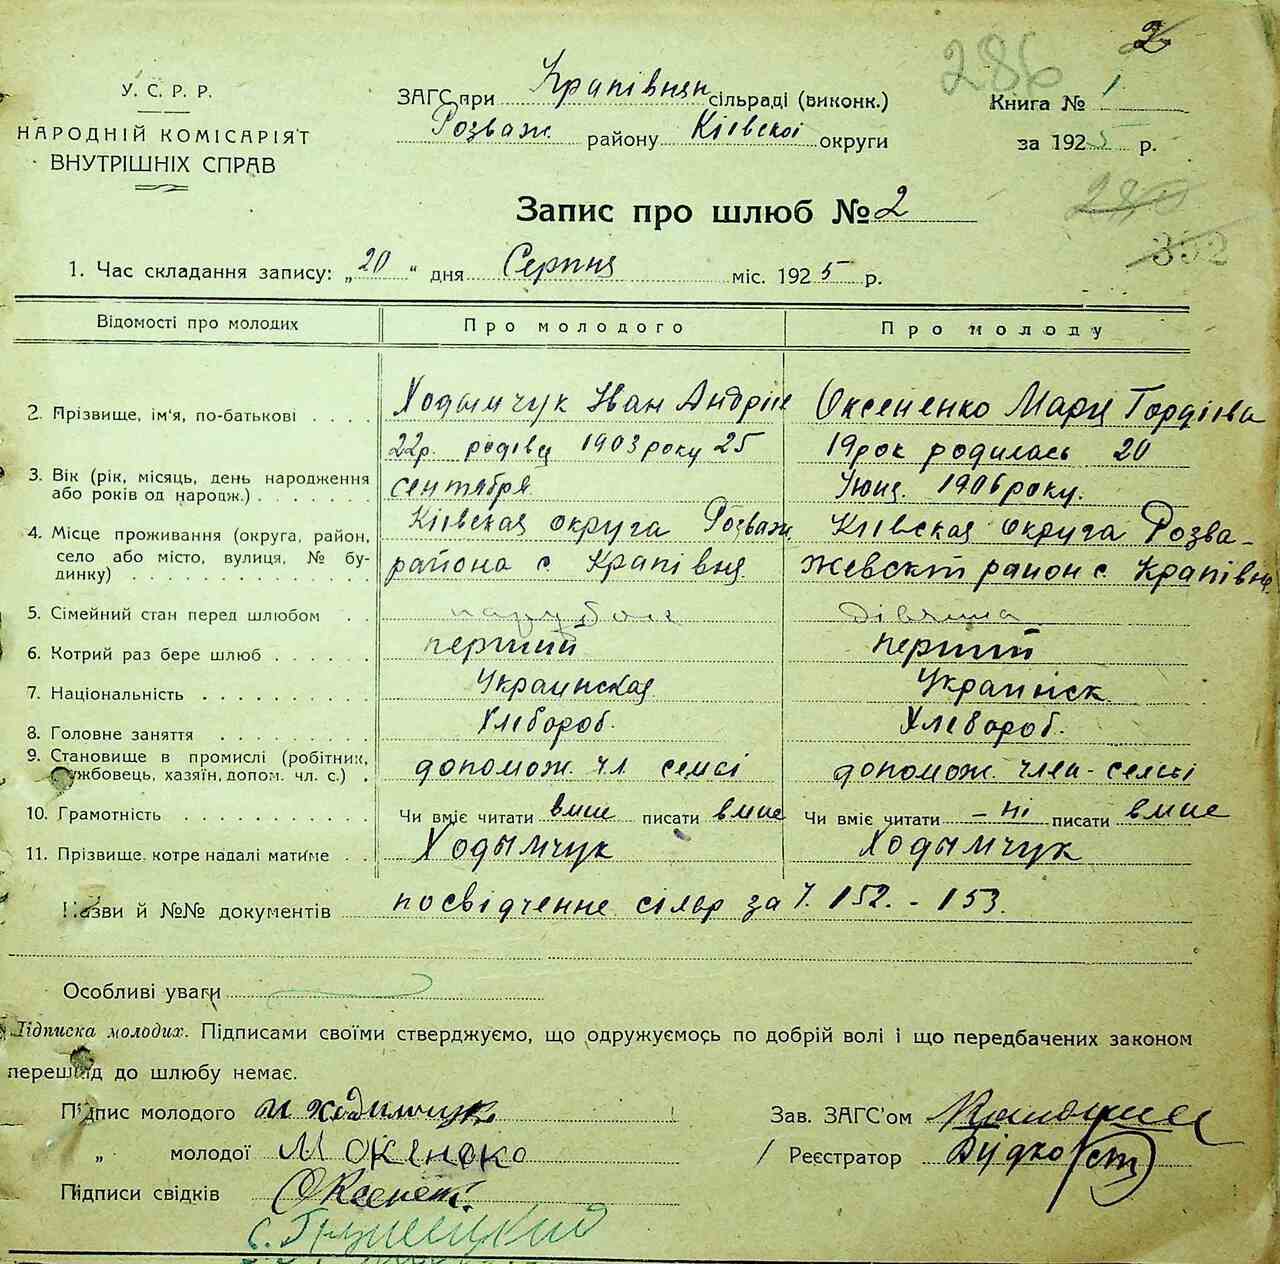 2
286
У. С. Р. Р.
НАРОДНІЙ КОМІСАРІЯТ
ВНУТРІШНІХ СПРАВ
ЗАГС при Крапівнян сільраді (виконк.)
Розваж. району Кіевскоі округи
Книга № 1
за 1925 р.
Запис про шлюб № 2
280
352
1. Час складання запису: „20“ дня Серпня міс. 1925 р.
Відомості про молодих Про молодого Про молоду
2. Прізвище, ім'я, по-батькові . . . . Ходымчук Іван Андрііє Оксененко Мария Гордіівна
22р. родівця 1903 року 25 19 рок родилась 20
3. Вік (рік, місяць, день народження
або років од народж.) . . . . . . . сентября Июня. 1906 року.
4. Місце проживання (округа, район, Кіівская округа Розваж. Кіівская округа Розва-
село або місто, вулиця, № бу-
динку) . . . . . . . . . . района с. Крапівня жевскт район с. Крапівня
5. Сімейний стан перед шлюбом . . парубок дівчина
6. Котрий раз бере шлюб . . . . . . перший перший
7. Національність . . . . . . . . . Украинская Украинск.
8. Головне заняття . . . . . . . Хлебороб. Хлевороб.
9. Становище в промислі (робітник, допомож. чл. семєі допомож. член-семєі
службовець, хазяїн, допом. чл. с.) .
10. Грамотність . . . . . . . . . . Чи вміє читати вміє писати вміє Чи вміє читати - ні писати вміє
11. Прізвище, котре надалі матиме . . Ходымчук Ходымчук
Назви й №№ документів посвідченне сілвр за Ч. 152. - 153.
Особливі уваги
Підписка молодих. Підписами своїми стверджуємо, що одружуємось по добрій волі і що передбачених законом
перешкод до шлюбу немає.
Підпис молодого И Ходимчук Зав. ЗАГС'ом
„ молодої М Окєнєко Реєстратор Дудко
Підписи свідків Оксенєт.
с.